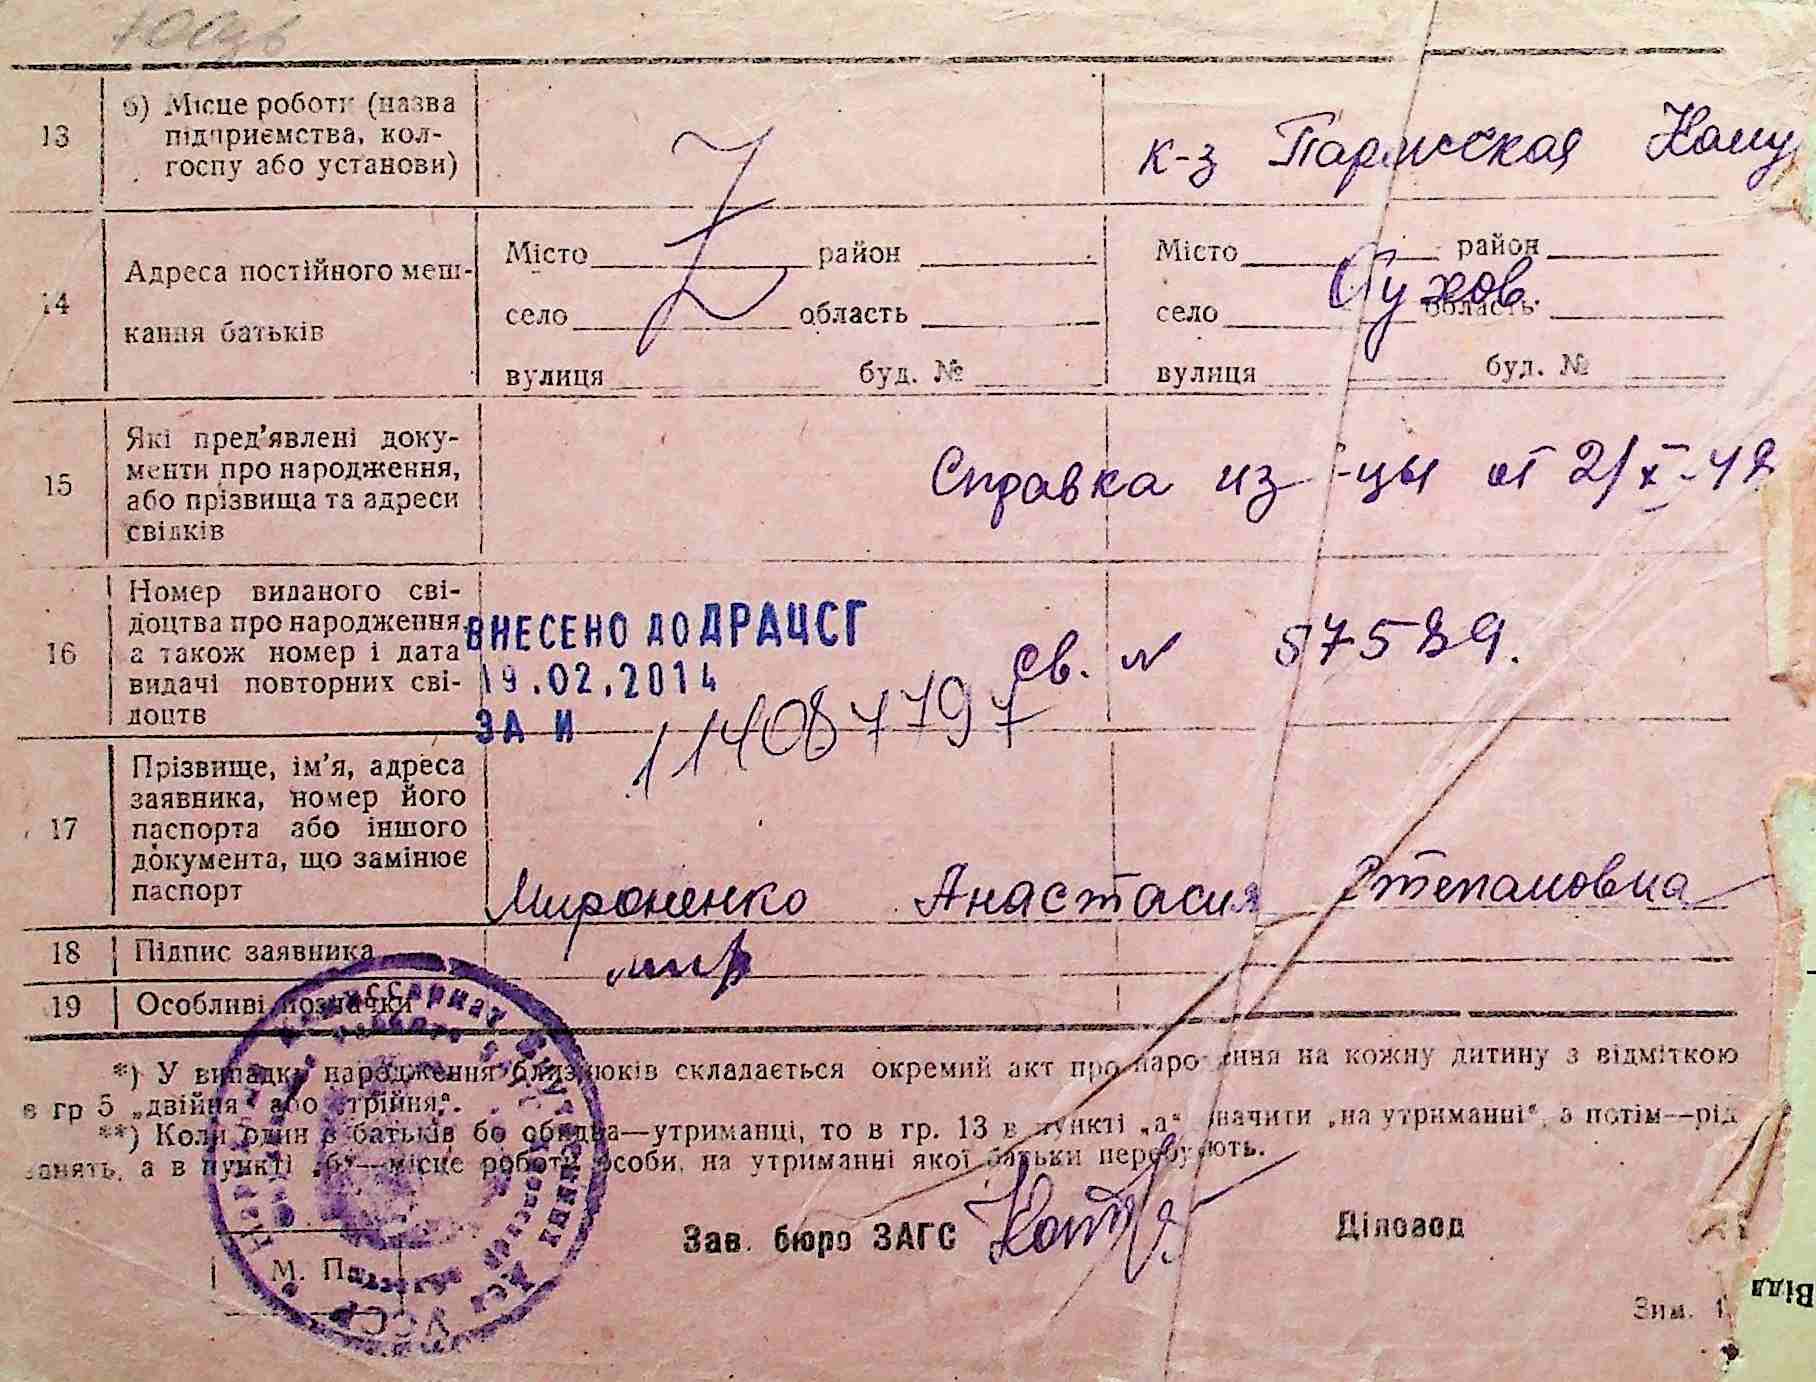 13
б) Місце роботи (назва
підприємства, кол-
госпу або установи)
к-з Парижская Кому
14
Адреса постійного меш-
кання батьків
Місто район
село область
вулиця буд. №
Місто район
село область
вулиця буд. №
15
Які пред'явлені доку-
менти про народження,
або прізвища та адреси
свідків
Справка из -цы от 21/X-42
16
Номер виданого сві-
доцтва про народження,
а також номер і дата
видачі повторних сві-
доцтв
ВНЕСЕНО ДО ДРАЦСГ
19.02.2014
ЗА И 114087797
св. N 57539.
17
Прізвище, ім'я, адреса
заявника, номер його
паспорта або іншого
документа, що замінює
паспорт
Мироненко Анастасия Степановна
18
Підпис заявника
мир
19
Особливі позначки
*) У випадку народження близнюків складається окремий акт про народження на кожну дитину з відміткою
в гр 5 „двійня" або „трійня".
**) Коли один з батьків бо обидва—утриманці, то в гр. 13 в пункті „а" значити „на утриманні", з потім—рід
занять, а в пункті „б"—місце роботи особи, на утриманні якої батьки перебувають.
Зав. бюро ЗАГС
Діловод
М. П.
УССР
Зим. 1
Відд